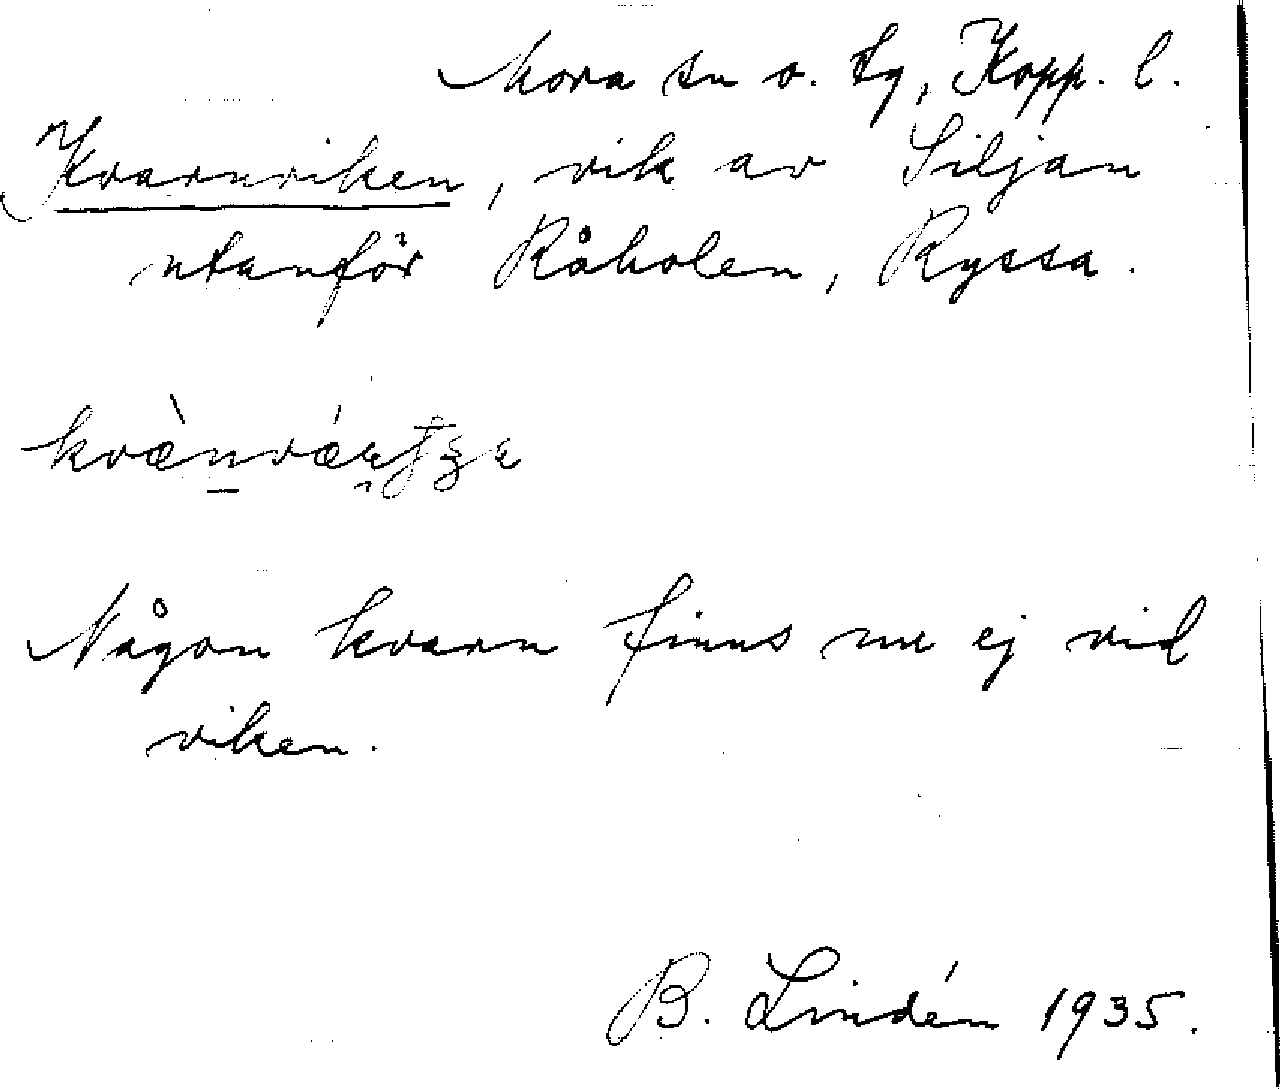 Mora sn o. tg, Kopp. l.
Kvarnviken, vik av Siljan
utanför Råholen, Ryssa.
Någon kvarn finns nu ej vid
viken.
B. Lindén 1935.